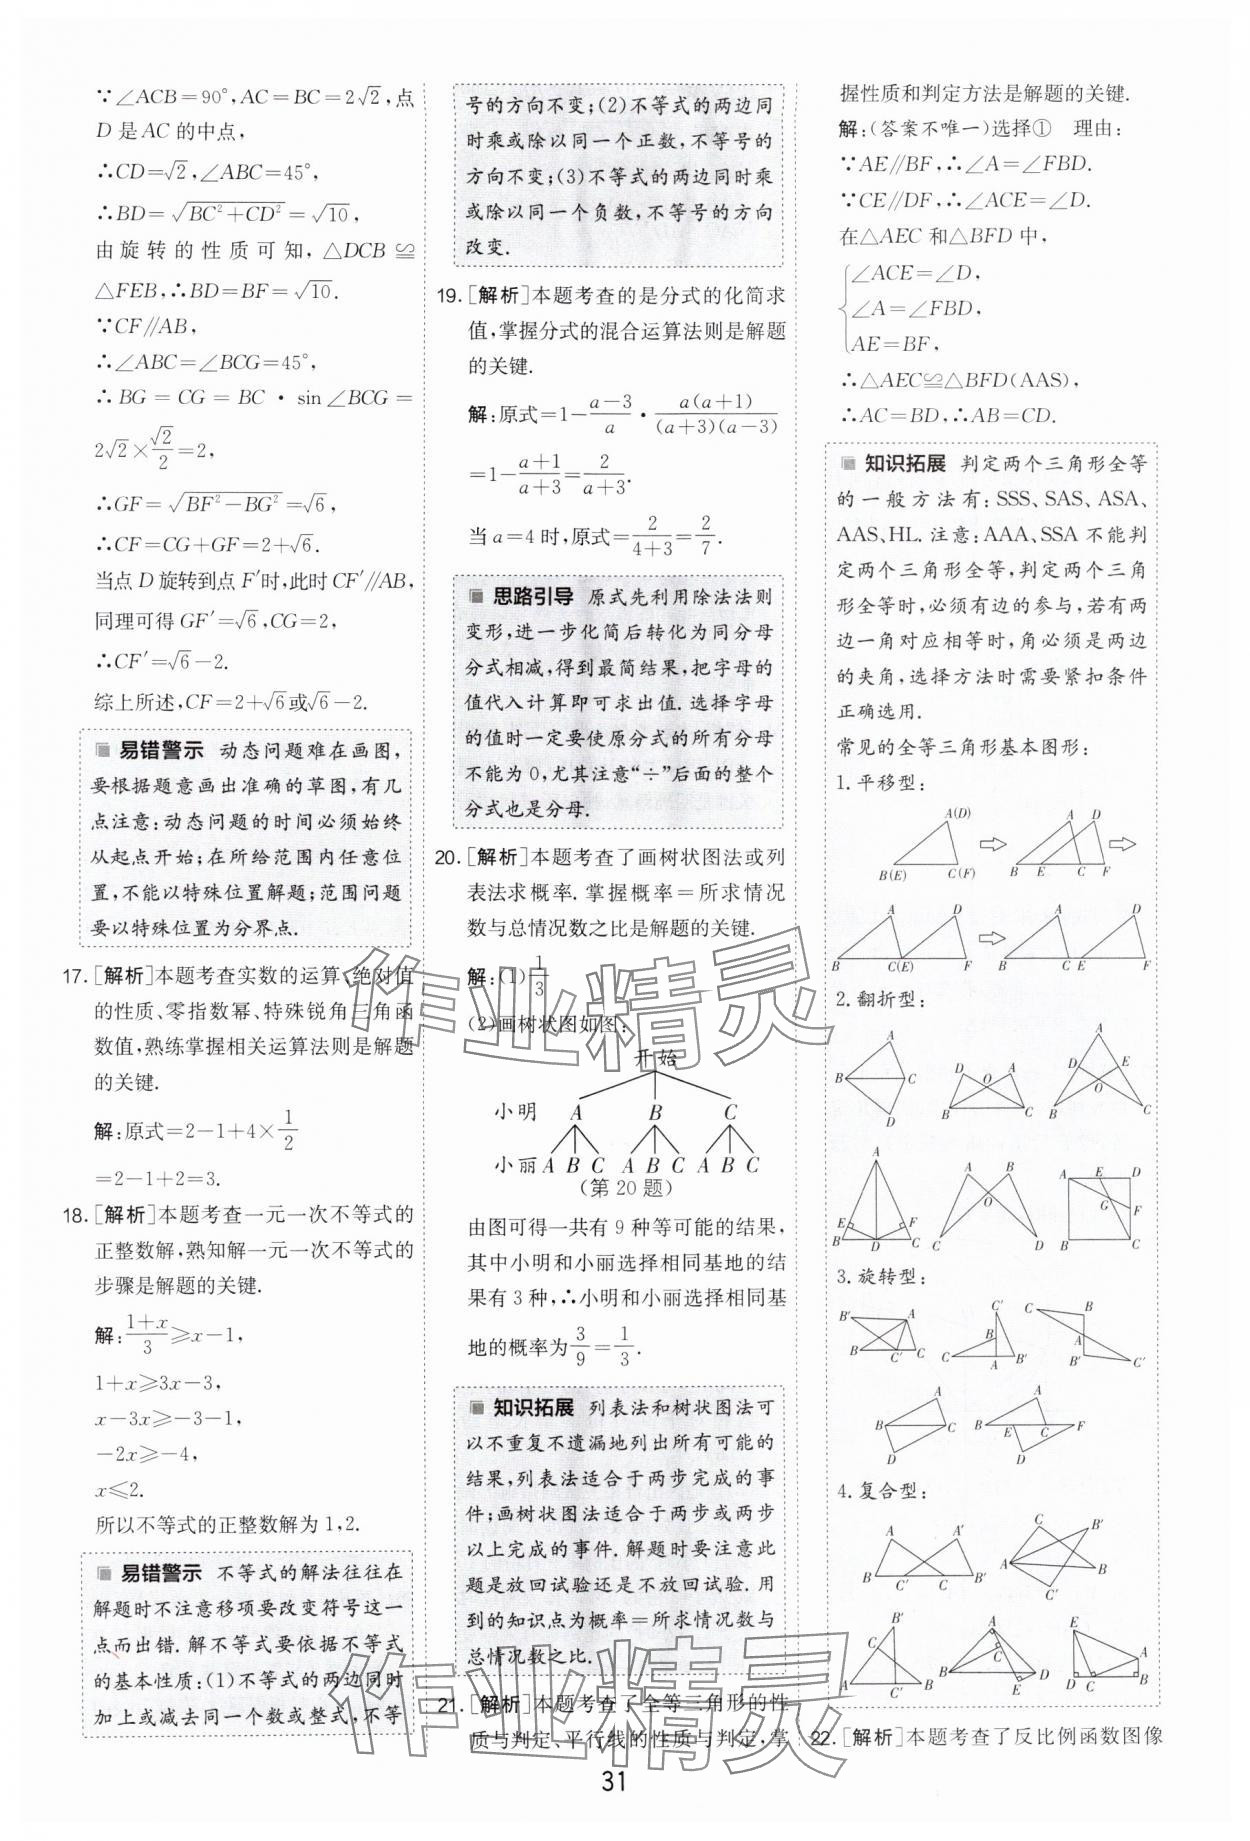 ∵∠ACB=90°,AC=BC=2√2,点
D是AC的中点,
∴CD=√2,∠ABC=45°,
∴BD=√(BC²+CD²)=√10,
由旋转的性质可知,△DCB≌
△FEB,∴BD=BF=√10.
∵CF∥AB,
∴∠ABC=∠BCG=45°,
∴BG=CG=BC·sin∠BCG=
2√2×√2/2=2,
∴GF=√(BF²-BG²)=√6,
∴CF=CG+GF=2+√6.
当点D旋转到点F′时,此时CF′∥AB,
同理可得GF′=√6,CG=2,
∴CF′=√6-2.
综上所述,CF=2+√6或√6-2.
易错警示 动态问题难在画图,
要根据题意画出准确的草图,有几
点注意:动态问题的时间必须始终
从起点开始;在所给范围内任意位
置,不能以特殊位置解题;范围问题
要以特殊位置为分界点.
17.[解析]本题考查实数的运算、绝对值
的性质、零指数幂、特殊锐角三角函
数值,熟练掌握相关运算法则是解题
的关键.
解:原式=2-1+4×1/2
=2-1+2=3.
18.[解析]本题考查一元一次不等式的
正整数解,熟知解一元一次不等式的
步骤是解题的关键.
解:(1+x)/3≥x-1,
1+x≥3x-3,
x-3x≥-3-1,
-2x≥-4,
x≤2.
所以不等式的正整数解为1,2.
易错警示 不等式的解法往往在
解题时不注意移项要改变符号这一
点而出错.解不等式要依据不等式
的基本性质:(1)不等式的两边同时
加上或减去同一个数或整式,不等
号的方向不变;(2)不等式的两边同
时乘或除以同一个正数,不等号的
方向不变;(3)不等式的两边同时乘
或除以同一个负数,不等号的方向
改变.
19.[解析]本题考查的是分式的化简求
值,掌握分式的混合运算法则是解题
的关键.
解:原式=1-(a-3)/a·a(a+1)/((a+3)(a-3))
=1-(a+1)/(a+3)=2/(a+3).
当a=4时,原式=2/(4+3)=2/7.
思路引导 原式先利用除法法则
变形,进一步化简后转化为同分母
分式相减,得到最简结果,把字母的
值代入计算即可求出值.选择字母
的值时一定要使原分式的所有分母
不能为0,尤其注意“÷”后面的整个
分式也是分母.
20.[解析]本题考查了画树状图法或列
表法求概率.掌握概率=所求情况
数与总情况数之比是解题的关键.
解:(1)1/3
(2)画树状图如图:
开始
小明 A B C
小丽 A B C A B C A B C
(第20题)
由图可得一共有9种等可能的结果,
其中小明和小丽选择相同基地的结
果有3种,∴小明和小丽选择相同基
地的概率为3/9=1/3.
知识拓展 列表法和树状图法可
以不重复不遗漏地列出所有可能的
结果,列表法适合于两步完成的事
件;画树状图法适合于两步或两步
以上完成的事件.解题时要注意此
题是放回试验还是不放回试验.用
到的知识点为概率=所求情况数与
总情况数之比.
21.[解析]本题考查了全等三角形的性
质与判定、平行线的性质与判定,掌
握性质和判定方法是解题的关键.
解:(答案不唯一)选择① 理由:
∵AE∥BF,∴∠A=∠FBD.
∵CE∥DF,∴∠ACE=∠D.
在△AEC和△BFD中,
∠ACE=∠D,
∠A=∠FBD,
AE=BF,
∴△AEC≌△BFD(AAS),
∴AC=BD,∴AB=CD.
知识拓展 判定两个三角形全等
的一般方法有:SSS、SAS、ASA、
AAS、HL.注意:AAA、SSA不能判
定两个三角形全等,判定两个三角
形全等时,必须有边的参与,若有两
边一角对应相等时,角必须是两边
的夹角,选择方法时需要紧扣条件
正确选用.
常见的全等三角形基本图形:
1.平移型:
A(D) A D
B(E) C(F) B E C F
A D A D
B C(E) F B C E F
2.翻折型:
A D A A
B C O D E
D B C O B C
A A B A E D
E F O G F
B D C C D B C
3.旋转型:
B′ A C′ C B
B C′ C B C A B′ B′ A C′
A A
B C B E C F
D D
4.复合型:
A A′ C B′
B C′ C B′ A B C′
B′ A E
C C A
A C′ B B E D D C B
22.[解析]本题考查了反比例函数图像
31
作业精灵
作业精灵